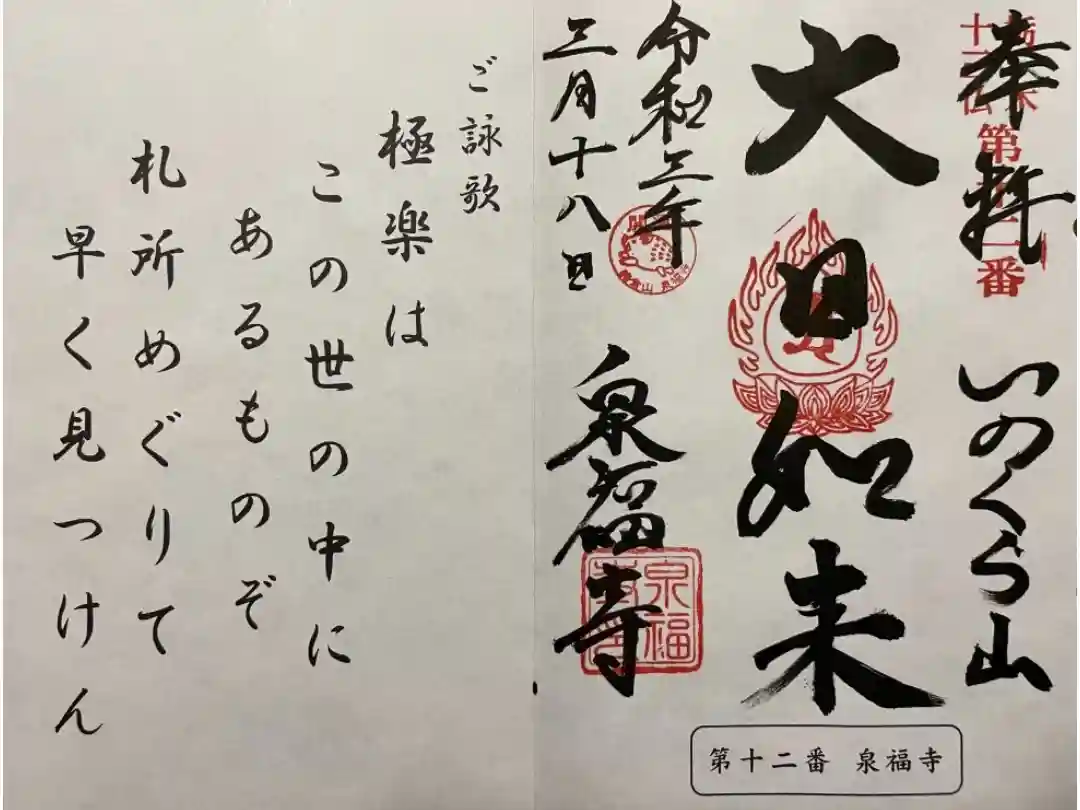 奉拝
第十二番
いのくら山
大日如来
令和三年
三月十八日
泉福寺
泉福
第十二番 泉福寺
ご詠歌
極楽は
この世の中に
あるものぞ
札所めぐりて
早く見つけん